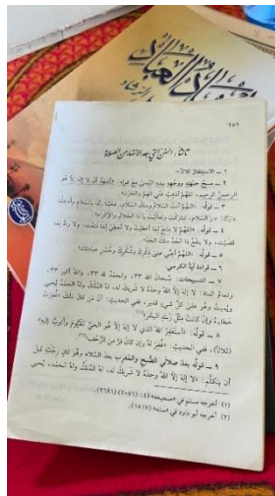 ٢٥٢
ثالثًا: السنن التي بعد الانتهاء من الصلاة
١ - الاستغفار ثلاثًا
٢ - مسح جبهته ووجهه بيده اليمنى مع قوله: «أشهد أن لا إله إلا هو
الرحمن الرحيم، اللهم أذهب عني الهم والحزن»
٣ - قوله: «اللهم أنت السلام ومنك السلام، فحينا ربنا بالسلام وأدخلنا
دارك دار السلام، تباركت وتعاليت يا ذا الجلال والإكرام»
٤ - قوله: «اللهم لا مانع لما أعطيت ولا معطي لما منعت، ولا راد لما
قضيت، ولا ينفع ذا الجد منك الجد»
٥ - قوله: «اللهم أعني على ذكرك وشكرك وحسن عبادتك»
٦ - قراءة آية الكرسي
٧ - التسبيحات: سبحان الله ٣٣، والحمد لله ٣٣، والله أكبر ٣٣
وتمام المئة: لا إله إلا الله وحده لا شريك له، له الملك وله الحمد يحيي
ويميت وهو على كل شيء قدير، ففي الحديث: أن من قال ذلك «غفرت
خطاياه وإن كانت مثل زبد البحر»(١)
٨ - قوله: «أستغفر الله الذي لا إله إلا هو الحي القيوم وأتوب إليه»
(ثلاثًا)، ففي الحديث: «غفر له وإن كان فر من الزحف»(٢)
٩ - قوله بعد صلاتي الصبح والمغرب بعد السلام وهو ثان رجليه قبل
أن يتكلم: «لا إله إلا الله وحده لا شريك له، له الملك وله الحمد، يحيي
(١) أخرجه مسلم في «صحيحه»
(٢) أخرجه أبو داود في «سننه» (١٥١٧)